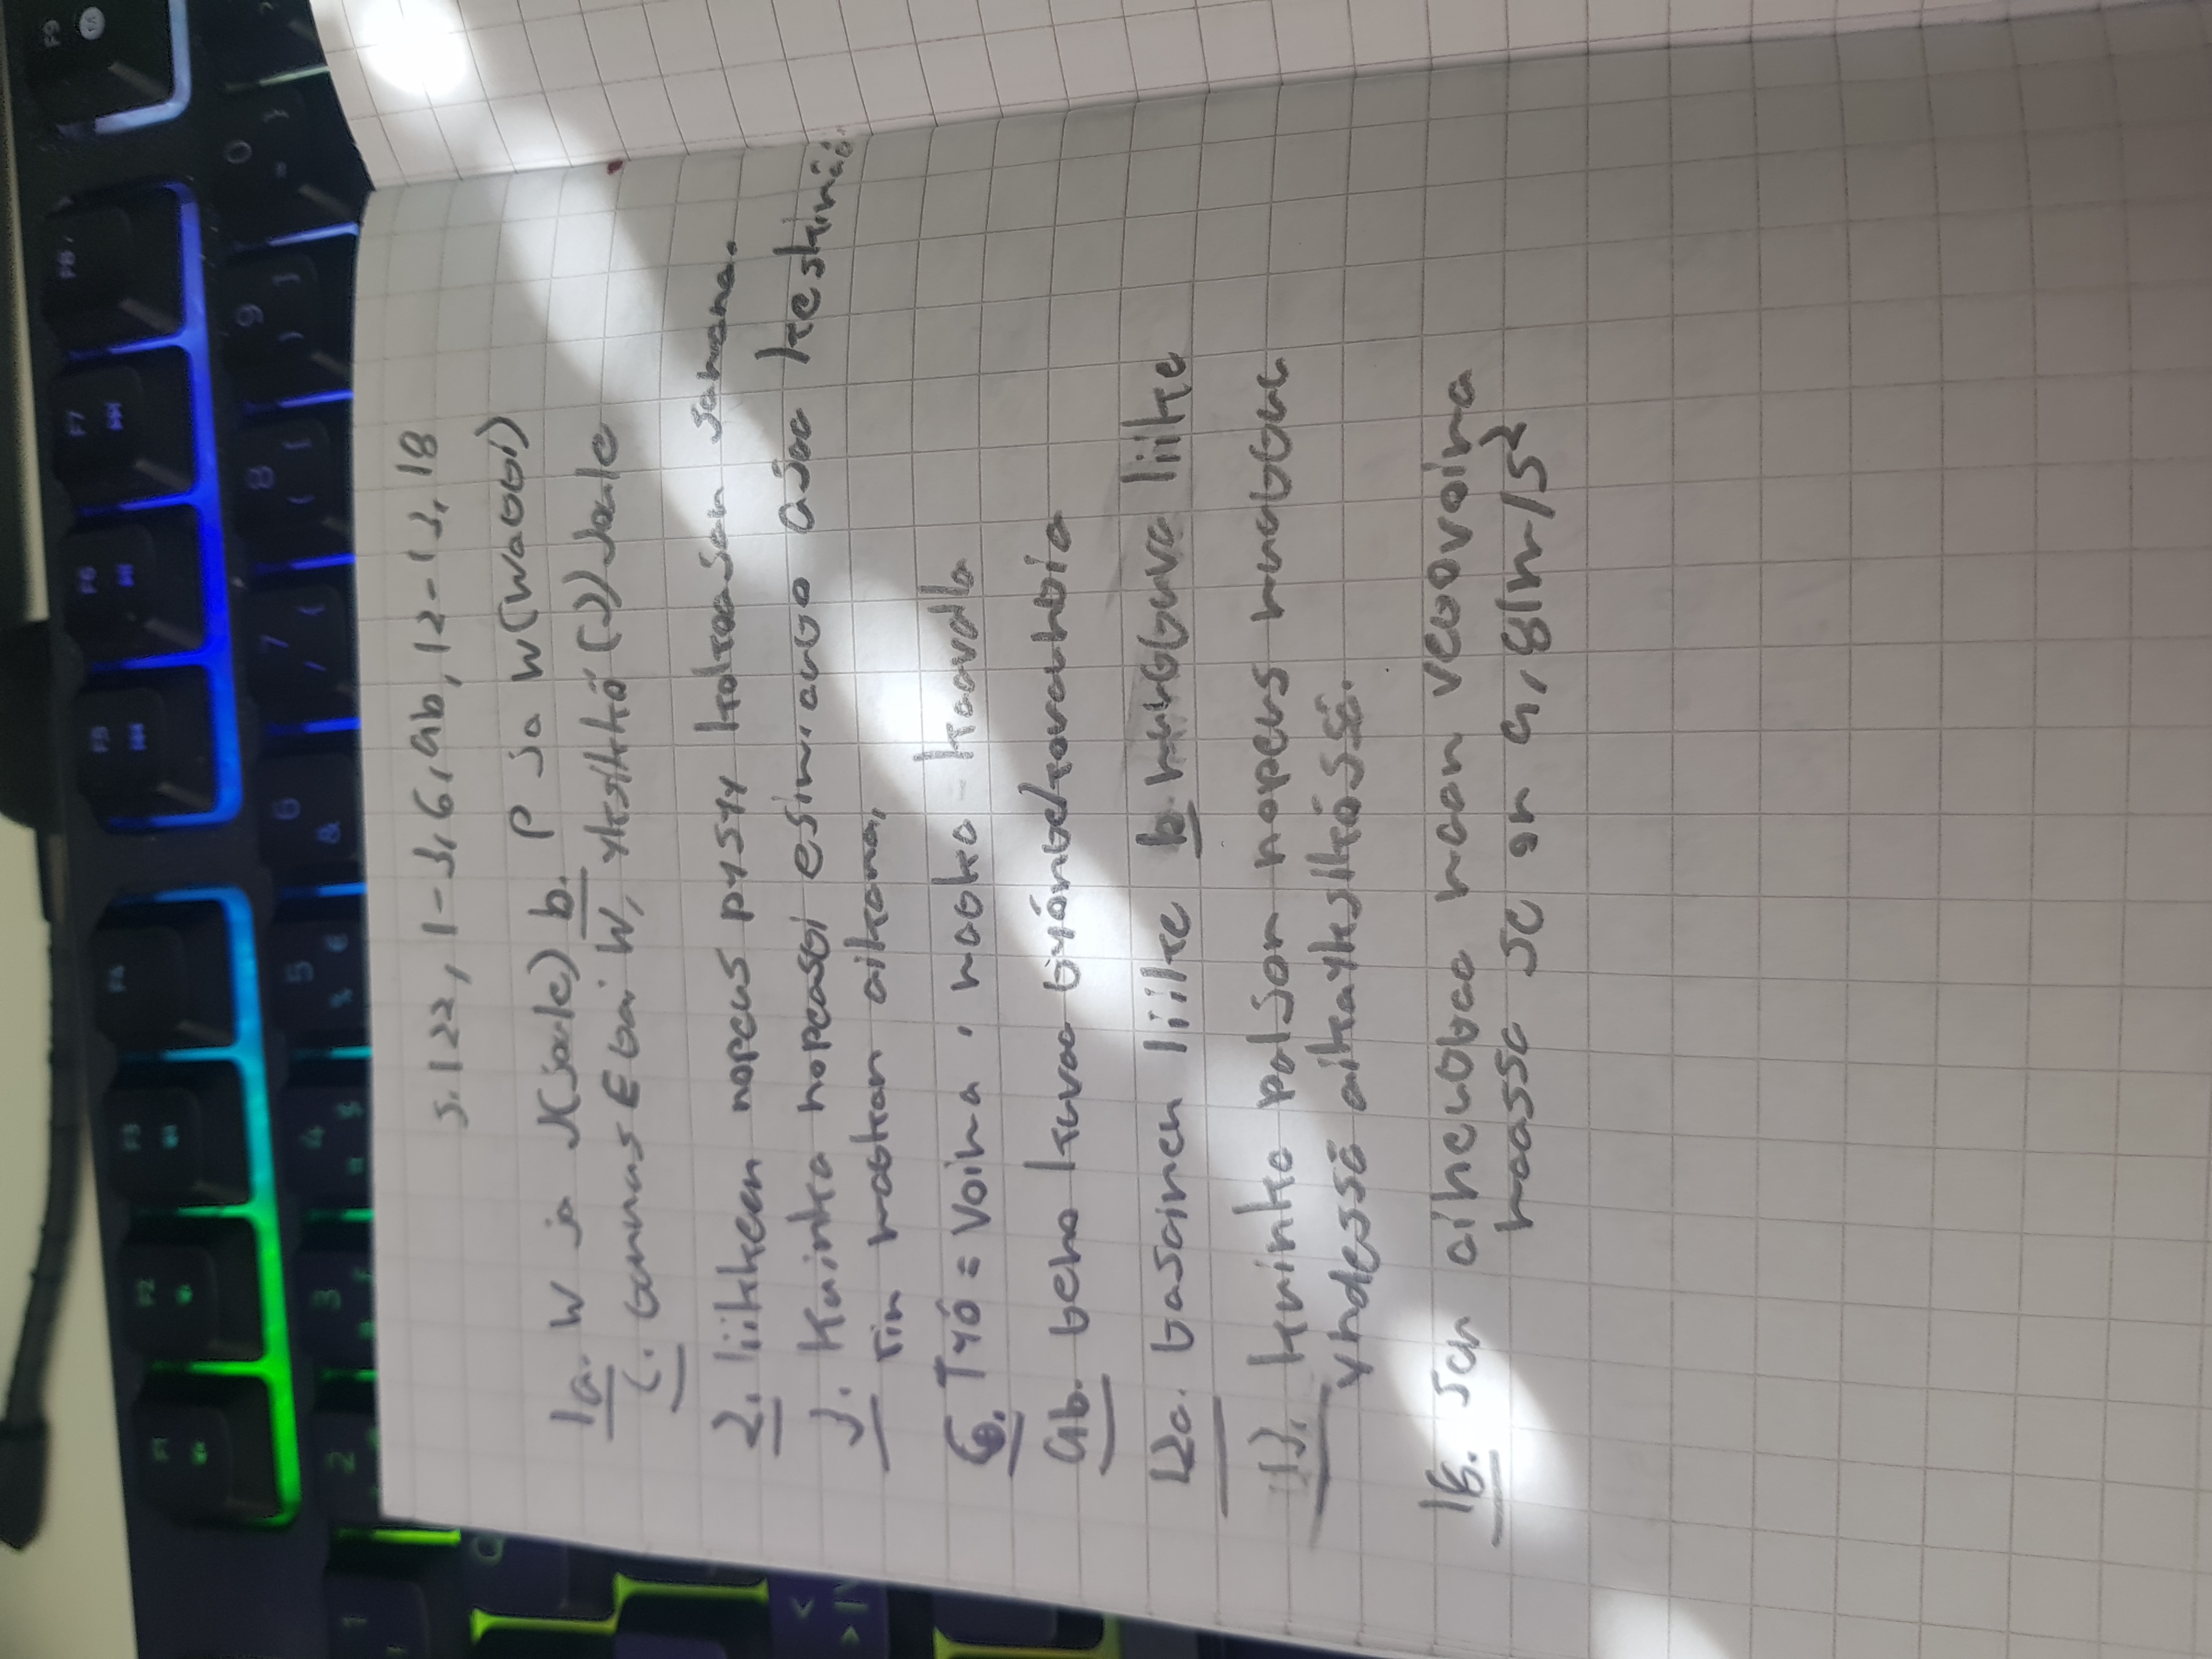 s.122, 1-3, 6, 9b, 12-13, 18
1a. W ja J(joule) b. P ja W(watti)
c. tunnus E tai W, yksikkö (J) Joule
2. liikkeen nopeus pysyy kokoajan samana.
3. Kuinka nopeasti esim. auto ajaa keskimää-
rin matkan aikana.
6. Työ = Voima · matka - kaavalla
9b. teho kuvaa työntekovauhtia
12a. tasainen liike b. muuttuva liike
13. kuinka paljon nopeus muuttuu
yhdessä aikayksikössä.
18. Sen aiheuttaa maan vetovoima
maassa se on 9,81m/s²
F1
F2
F3
F4
F5
F6
F7
F8
F9
1
2
3
4
5
6
7
8
9
0
Q